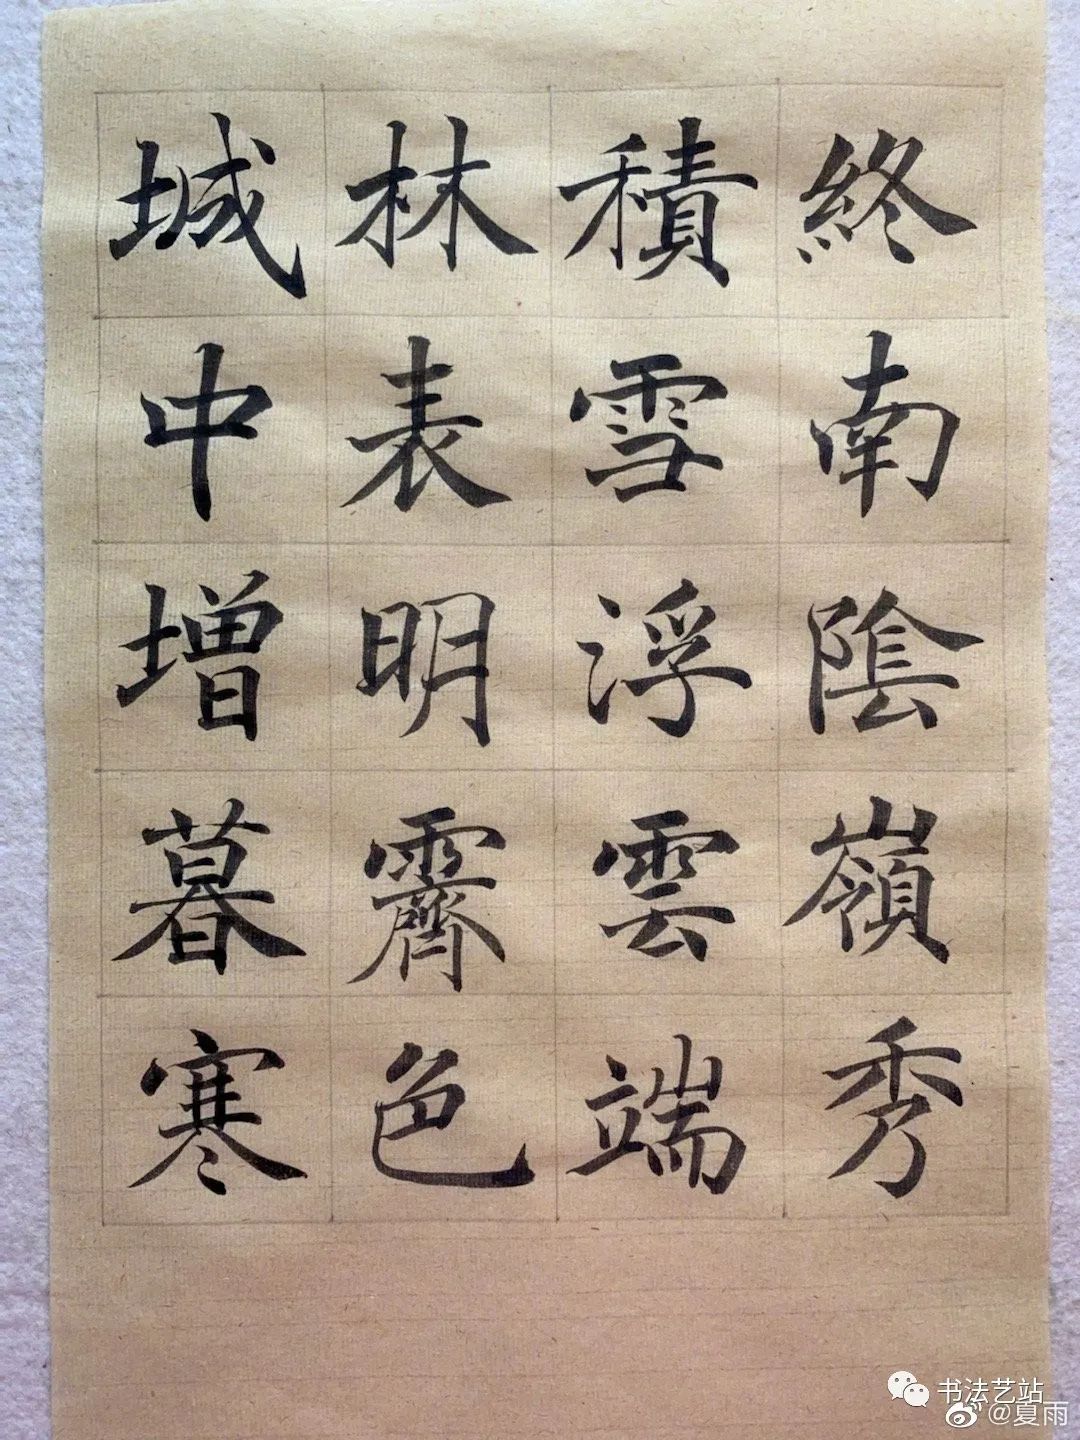 終南陰嶺秀
積雪浮雲端
林表明霽色
城中增暮寒
书法艺站
@夏雨